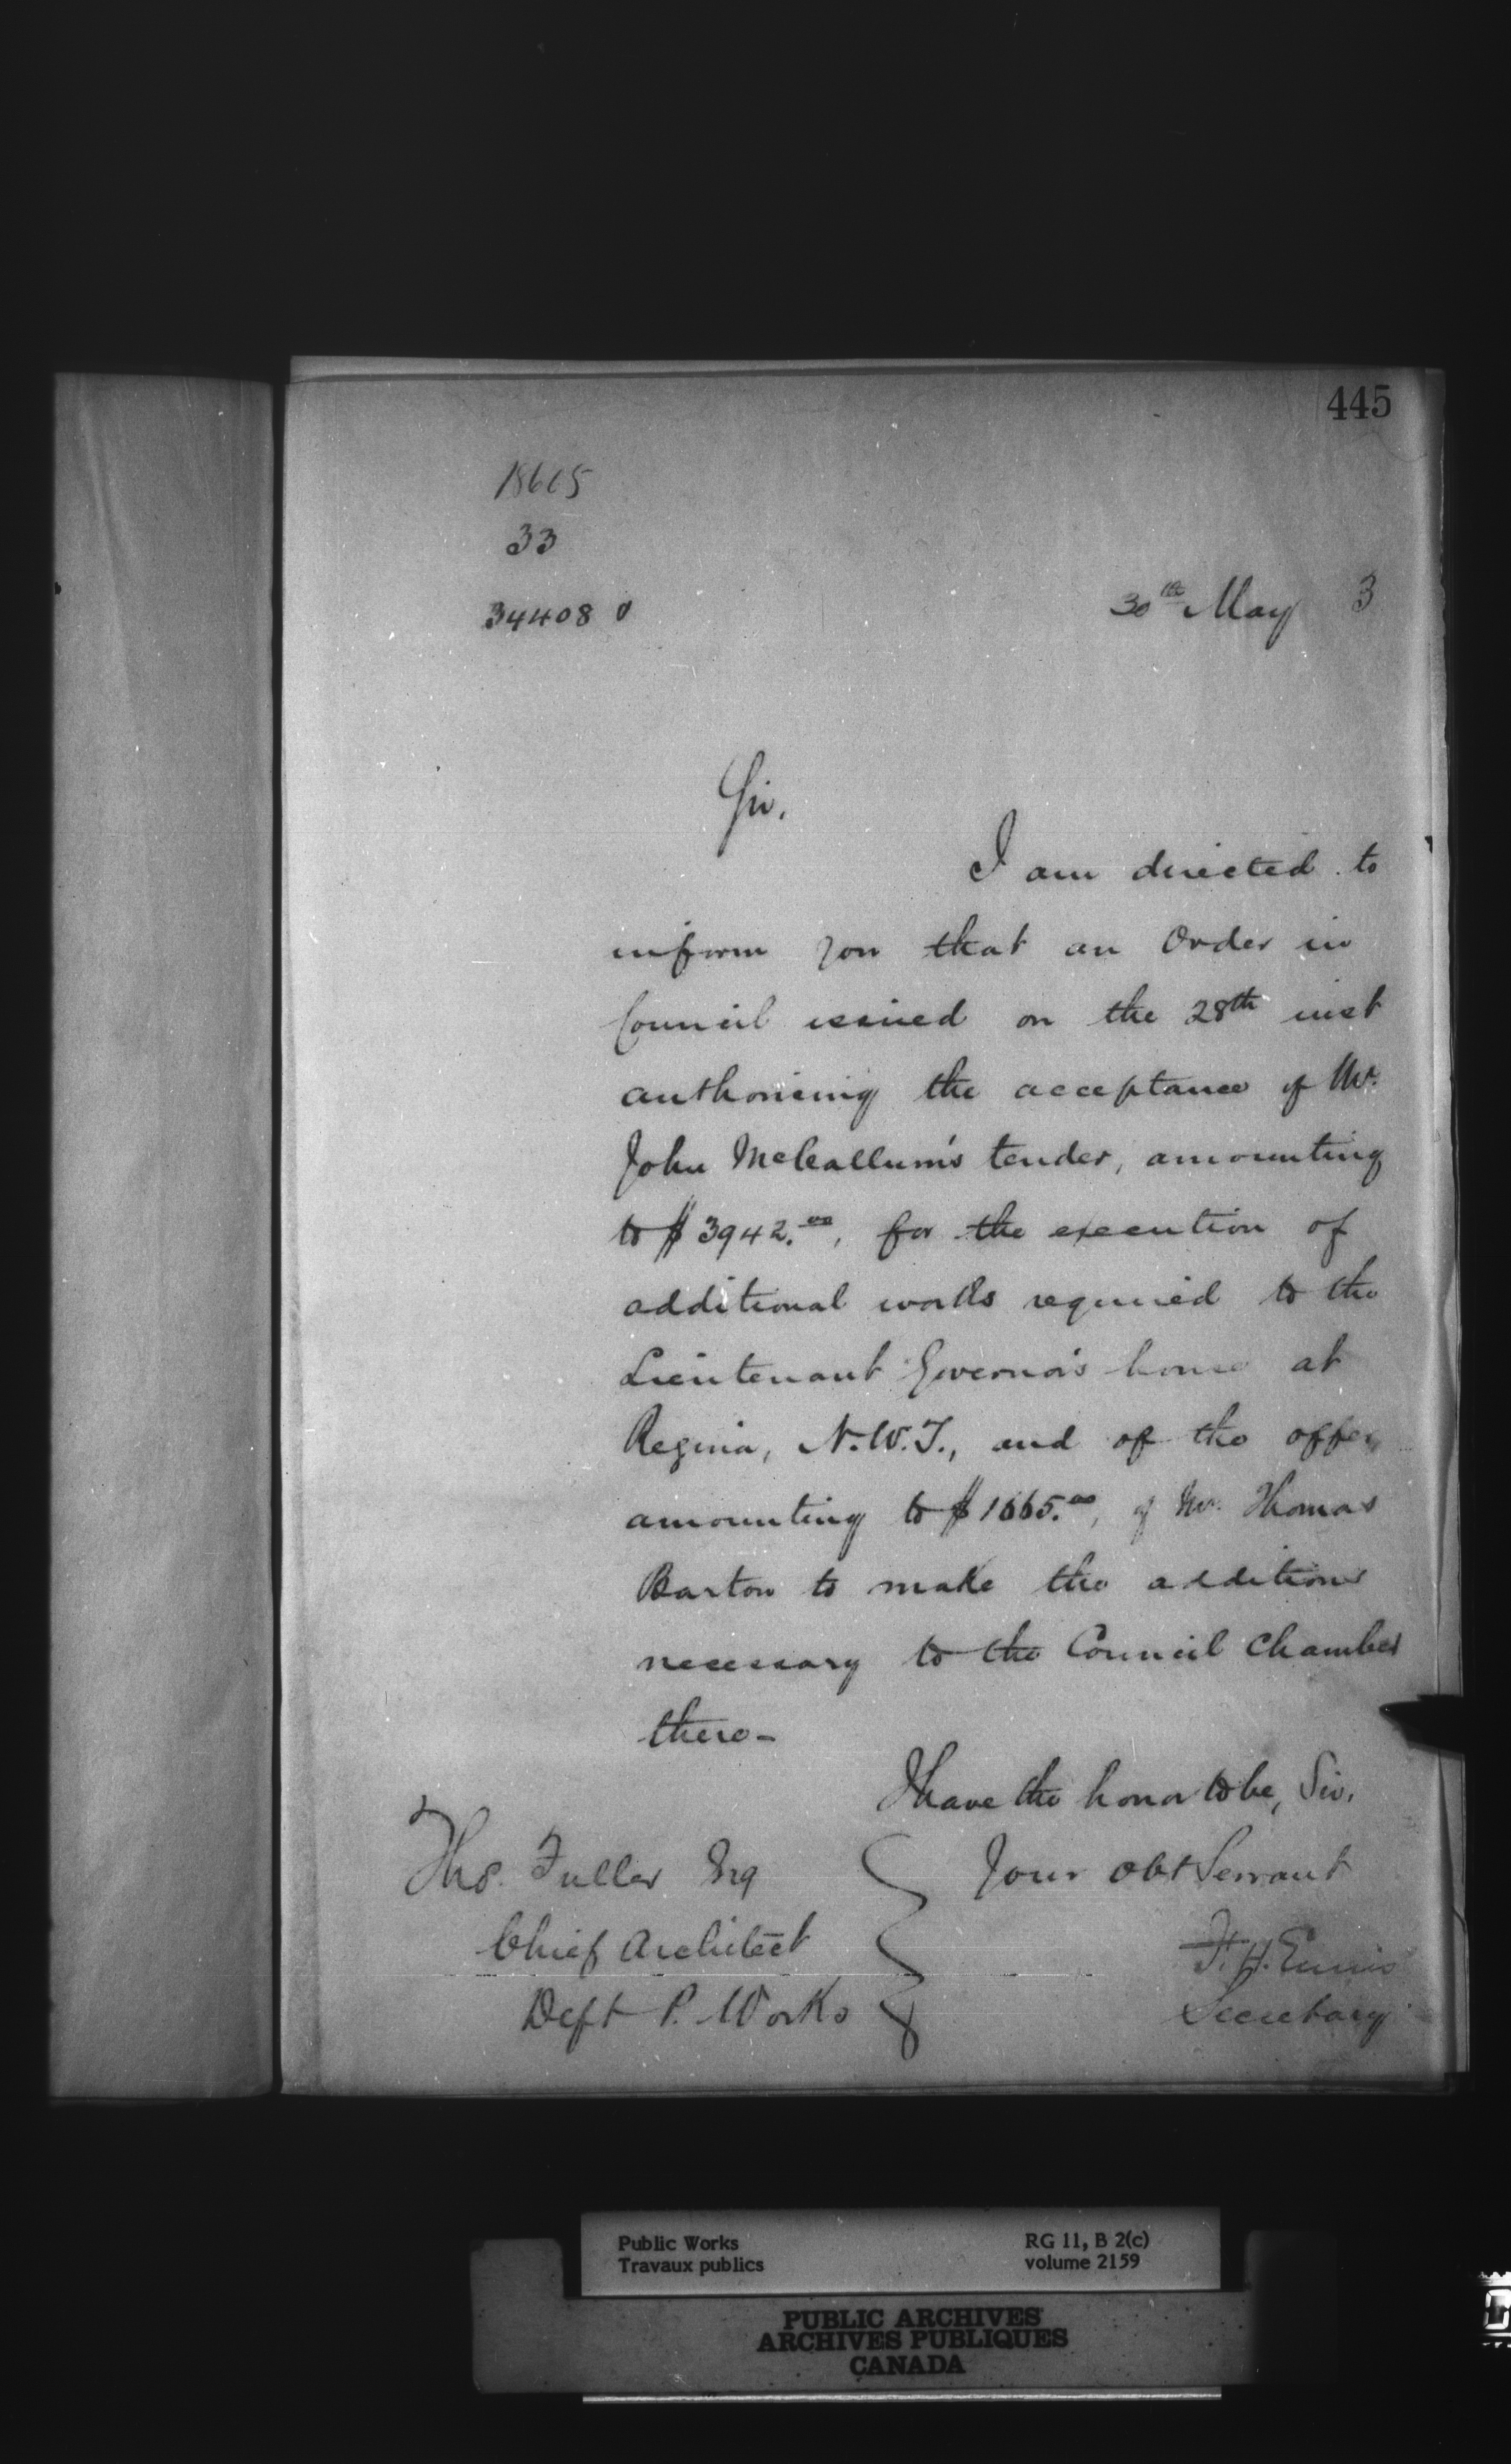 445
18615
33
34408 0
30th May 3
Sir,
I am directed to
inform you that an Order in
Council issued on the 28th inst
authorising the acceptance of Mr.
John McCallum's tender, amounting
to $3942.00, for the execution of
additional works required to the
Lieutenant Governor's house at
Regina, N.W.T., and of the offer,
amounting to $1665.00, of Mr. Thomas
Barton to make the additions
necessary to the Council Chamber
there-
I have the honor to be, Sir,
Your obt Servant
F. H. Ennis
Secretary
Thos. Fuller Esq
Chief Architect
Dept P. Works
Public Works
Travaux publics
RG 11, B 2(c)
volume 2159
PUBLIC ARCHIVES
ARCHIVES PUBLIQUES
CANADA